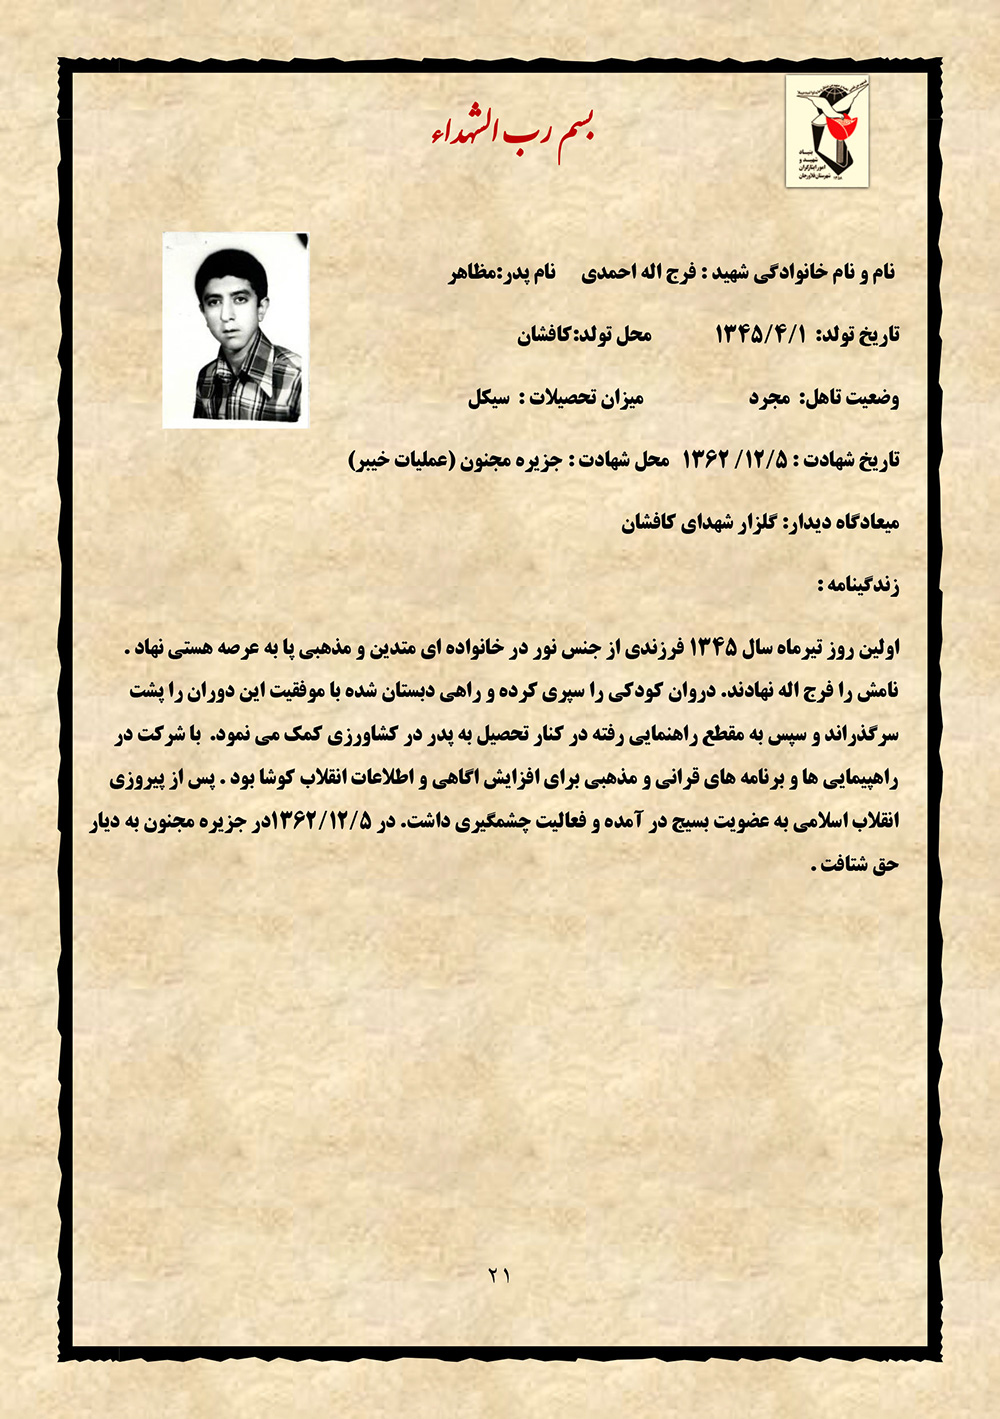 بسم رب الشهداء
بنیاد
شهید و
امور ایثارگران
شهرستان فلاورجان
نام و نام خانوادگی شهید : فرج اله احمدی نام پدر:مظاهر
تاریخ تولد: ۱۳۴۵/۴/۱ محل تولد:کافشان
وضعیت تاهل: مجرد میزان تحصیلات : سیکل
تاریخ شهادت : ۱۳۶۲ /۱۲/۵ محل شهادت : جزیره مجنون (عملیات خیبر)
میعادگاه دیدار: گلزار شهدای کافشان
زندگینامه :
اولین روز تیرماه سال ۱۳۴۵ فرزندی از جنس نور در خانواده ای متدین و مذهبی پا به عرصه هستی نهاد .
نامش را فرج اله نهادند. دروان کودکی را سپری کرده و راهی دبستان شده با موفقیت این دوران را پشت
سرگذراند و سپس به مقطع راهنمایی رفته در کنار تحصیل به پدر در کشاورزی کمک می نمود. با شرکت در
راهپیمایی ها و برنامه های قرانی و مذهبی برای افزایش اگاهی و اطلاعات انقلاب کوشا بود . پس از پیروزی
انقلاب اسلامی به عضویت بسیج در آمده و فعالیت چشمگیری داشت. در ۱۳۶۲/۱۲/۵در جزیره مجنون به دیار
حق شتافت .
۲۱